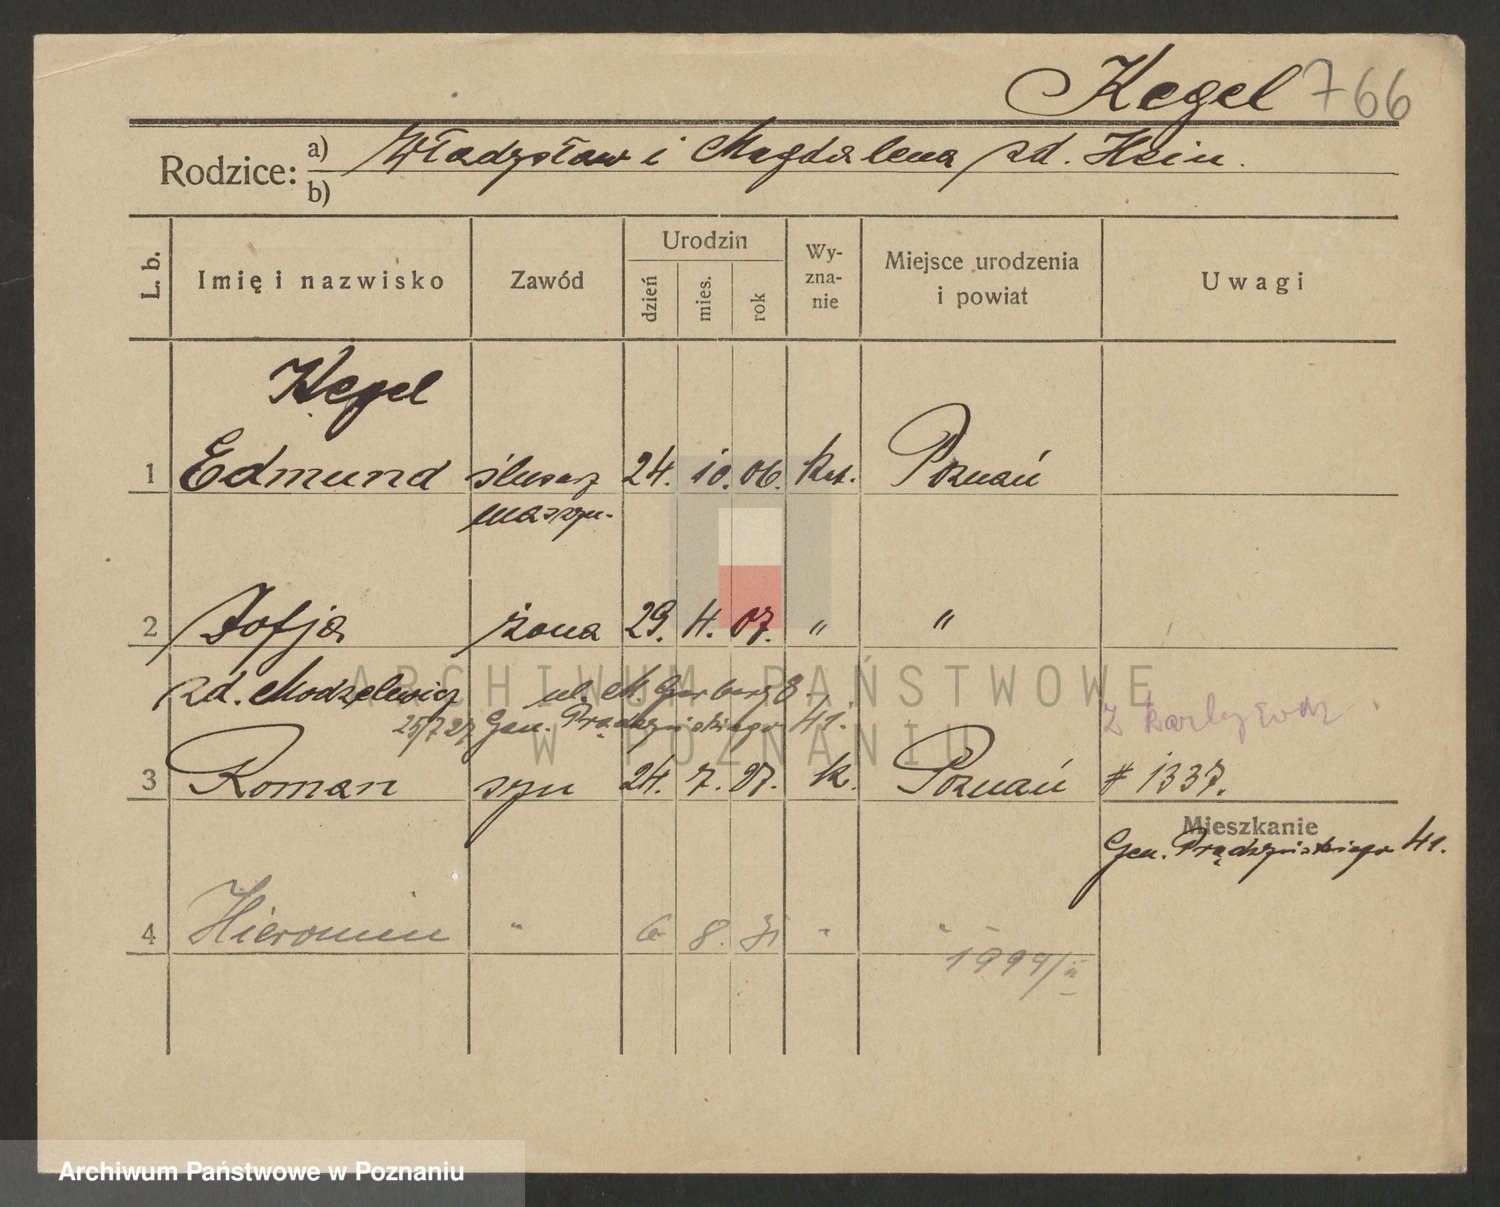 Kegel 766
Rodzice: a) Władysław i Magdalena zd. Hein.
b)
L. b. Imię i nazwisko Zawód Urodzin dzień mies. rok Wy-zna-nie Miejsce urodzenia i powiat Uwagi
Kegel
1 Edmund ślusarz 24. 10. 06. kat. Poznań
maszyn.
2 Zofja żona 29. 4. 07. " "
zd. Modzelewicz ul. M. Garbary 8.
25/7 27 Gen. Prądzyńskiego 41.
3 Roman syn 24. 7. 27. k. Poznań # 1337.
Mieszkanie
Gen. Prądzyńskiego 41.
4 Hieronim " 6. 8. 31 " "
ARCHIWUM PAŃSTWOWE
W POZNANIU
Archiwum Państwowe w Poznaniu